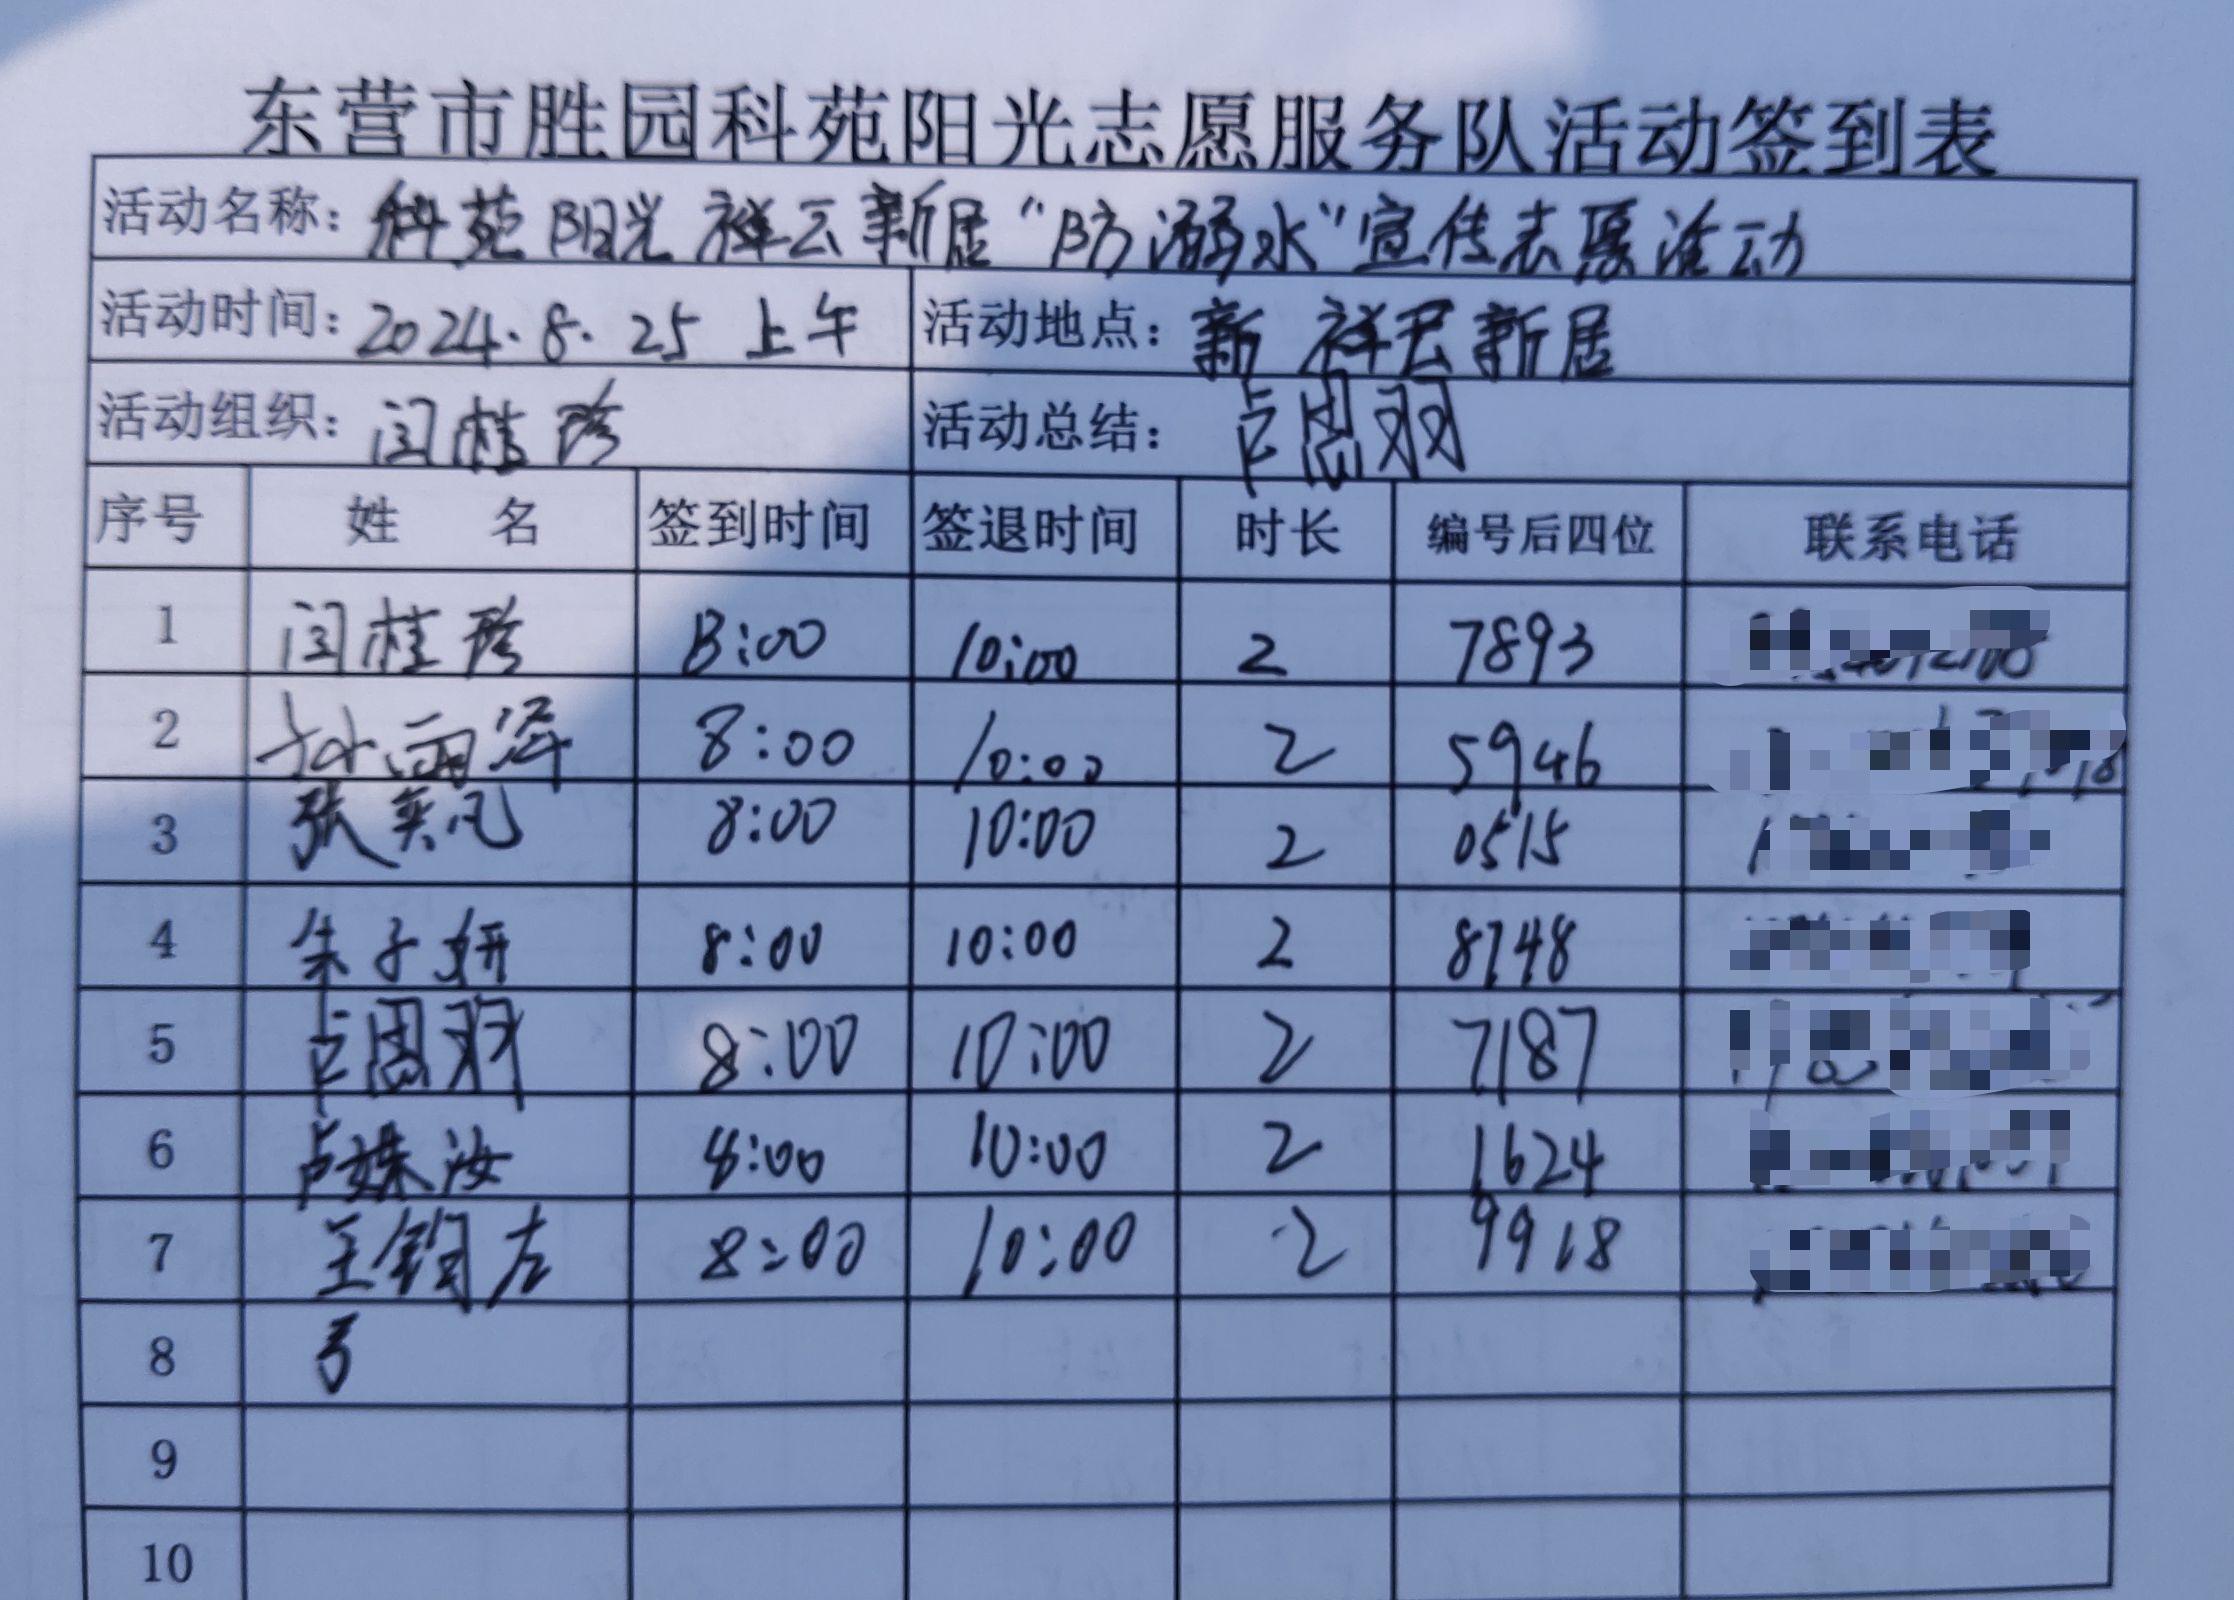 东营市胜园科苑阳光志愿服务队活动签到表
活动名称: 科苑阳光祥云新居“防溺水”宣传志愿活动
活动时间: 2024.8.25 上午 活动地点: 新 祥云新居
活动组织: 闫桂珍 活动总结: 卢恩羽
序号 姓 名 签到时间 签退时间 时长 编号后四位 联系电话
1 闫桂珍 8:00 10:00 2 7893
2 孙雨泽 8:00 10:00 2 5946
3 张奕凡 8:00 10:00 2 0515
4 朱子妍 8:00 10:00 2 8748
5 卢恩羽 8:00 10:00 2 7187
6 卢姝汝 8:00 10:00 2 1624
7 王钧左 8:00 10:00 2 9918
8
9
10